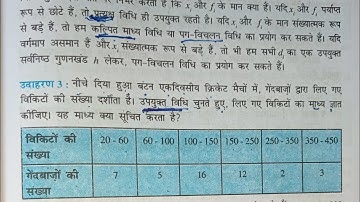 निर्भर करता है कि xᵢ और fᵢ के मान क्या हैं। यदि xᵢ और fᵢ पर्याप्त
रूप से छोटे हैं, तो प्रत्यक्ष विधि ही उपयुक्त रहती है। यदि xᵢ और fᵢ के मान संख्यात्मक रूप
से बड़े हैं, तो हम कल्पित माध्य विधि या पग-विचलन विधि का प्रयोग कर सकते हैं। यदि
वर्गमाप असमान हैं और xᵢ संख्यात्मक रूप से बड़े हैं, तो भी हम सभी dᵢ का एक उपयुक्त
सर्वनिष्ठ गुणनखंड h लेकर, पग-विचलन विधि का प्रयोग कर सकते हैं।
उदाहरण 3 : नीचे दिया हुआ बंटन एकदिवसीय क्रिकेट मैचों में, गेंदबाज़ों द्वारा लिए गए
विकिटों की संख्या दर्शाता है। उपयुक्त विधि चुनते हुए, लिए गए विकिटों का माध्य ज्ञात
कीजिए। यह माध्य क्या सूचित करता है?
विकिटों की संख्या 20 - 60 60 - 100 100 - 150 150 - 250 250 - 350 350 - 450
गेंदबाज़ों की संख्या 7 5 16 12 2 3